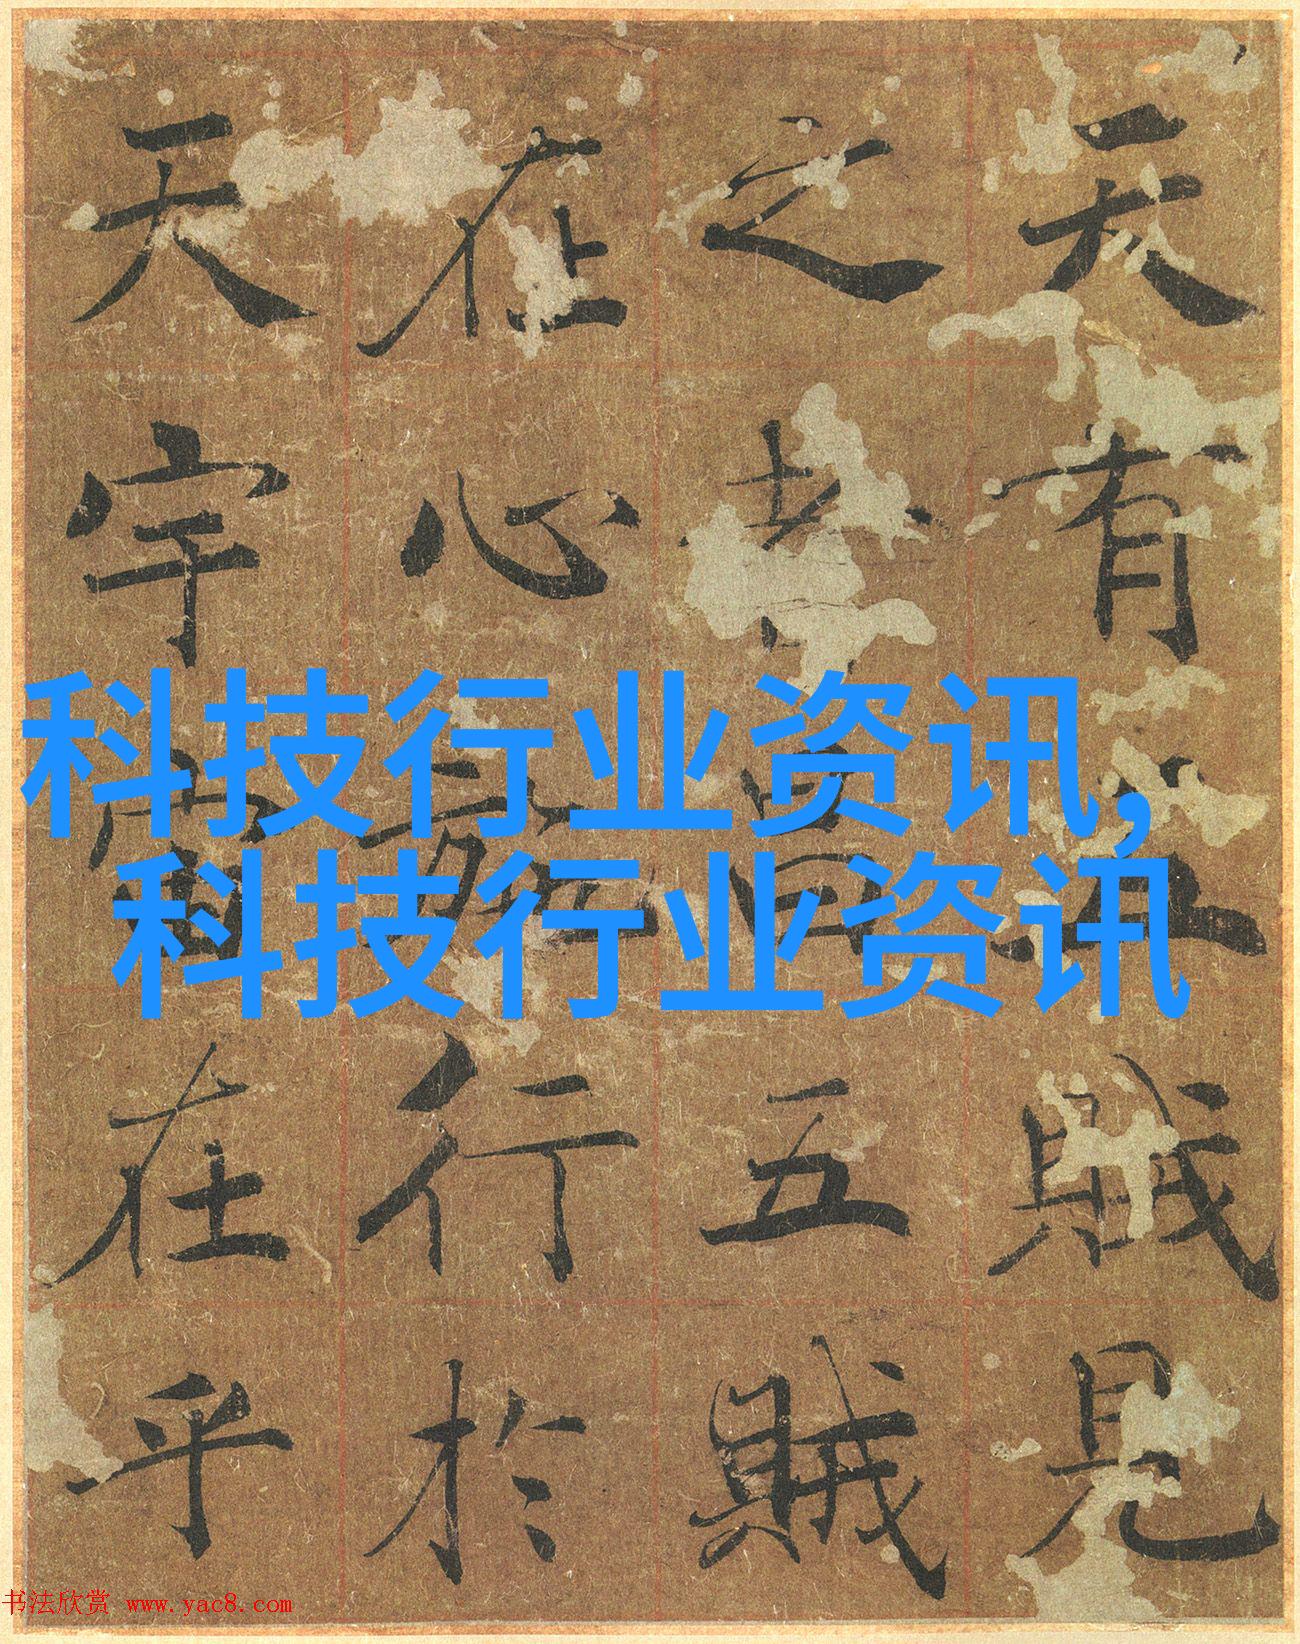 天有五賊見
之者昌五賊
在心施行於
天宇宙在乎
科技行业资讯,
科技行业资讯
书法欣赏 www.yac8.com